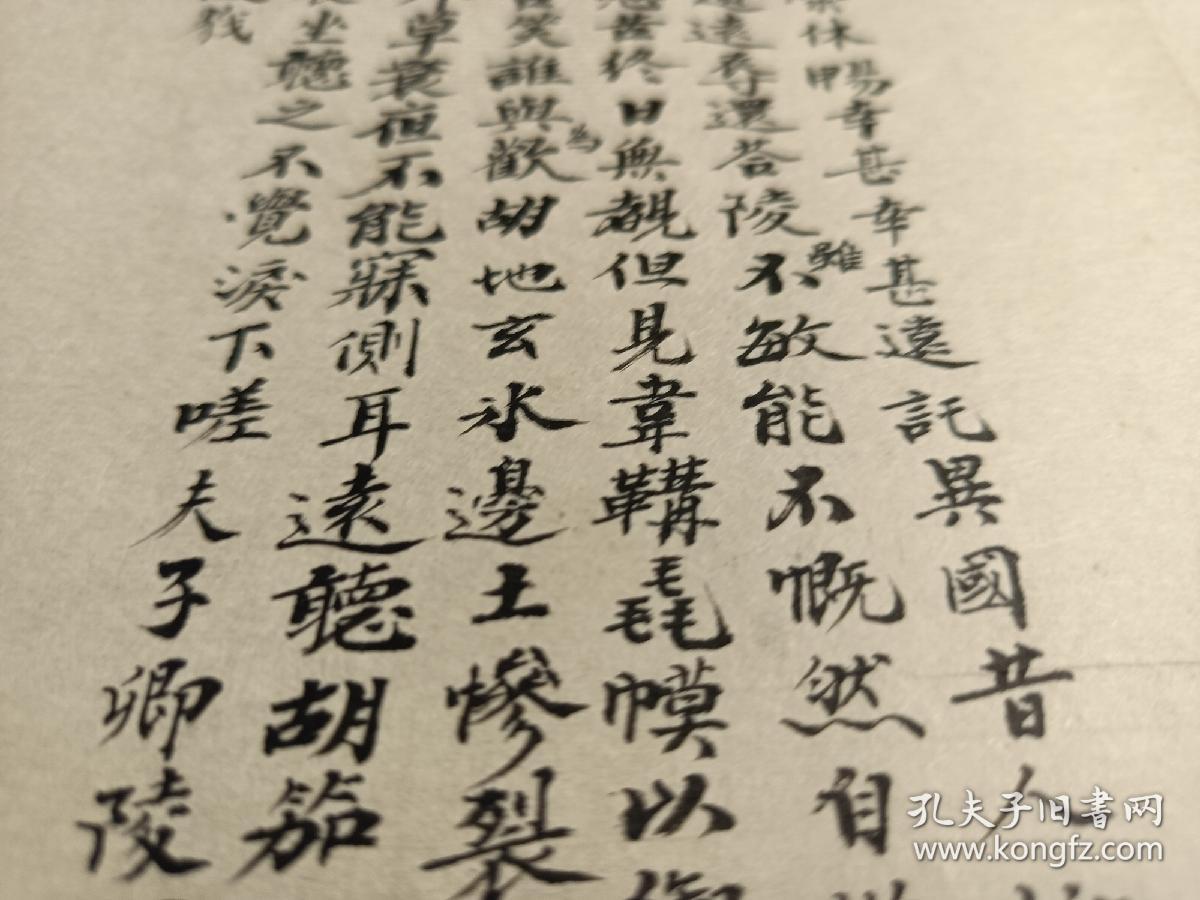 休暢幸甚幸甚遠託異國昔人
遠辱還荅陵雖不敏能不慨然自
苦終日無覩但見韋鞲毳幙以
笑誰與為歡胡地玄冰邊土慘裂
草衰但不能寐側耳遠聽胡笳
坐聽之不覺淚下嗟夫子卿陵
孔夫子旧书网
www.kongfz.com